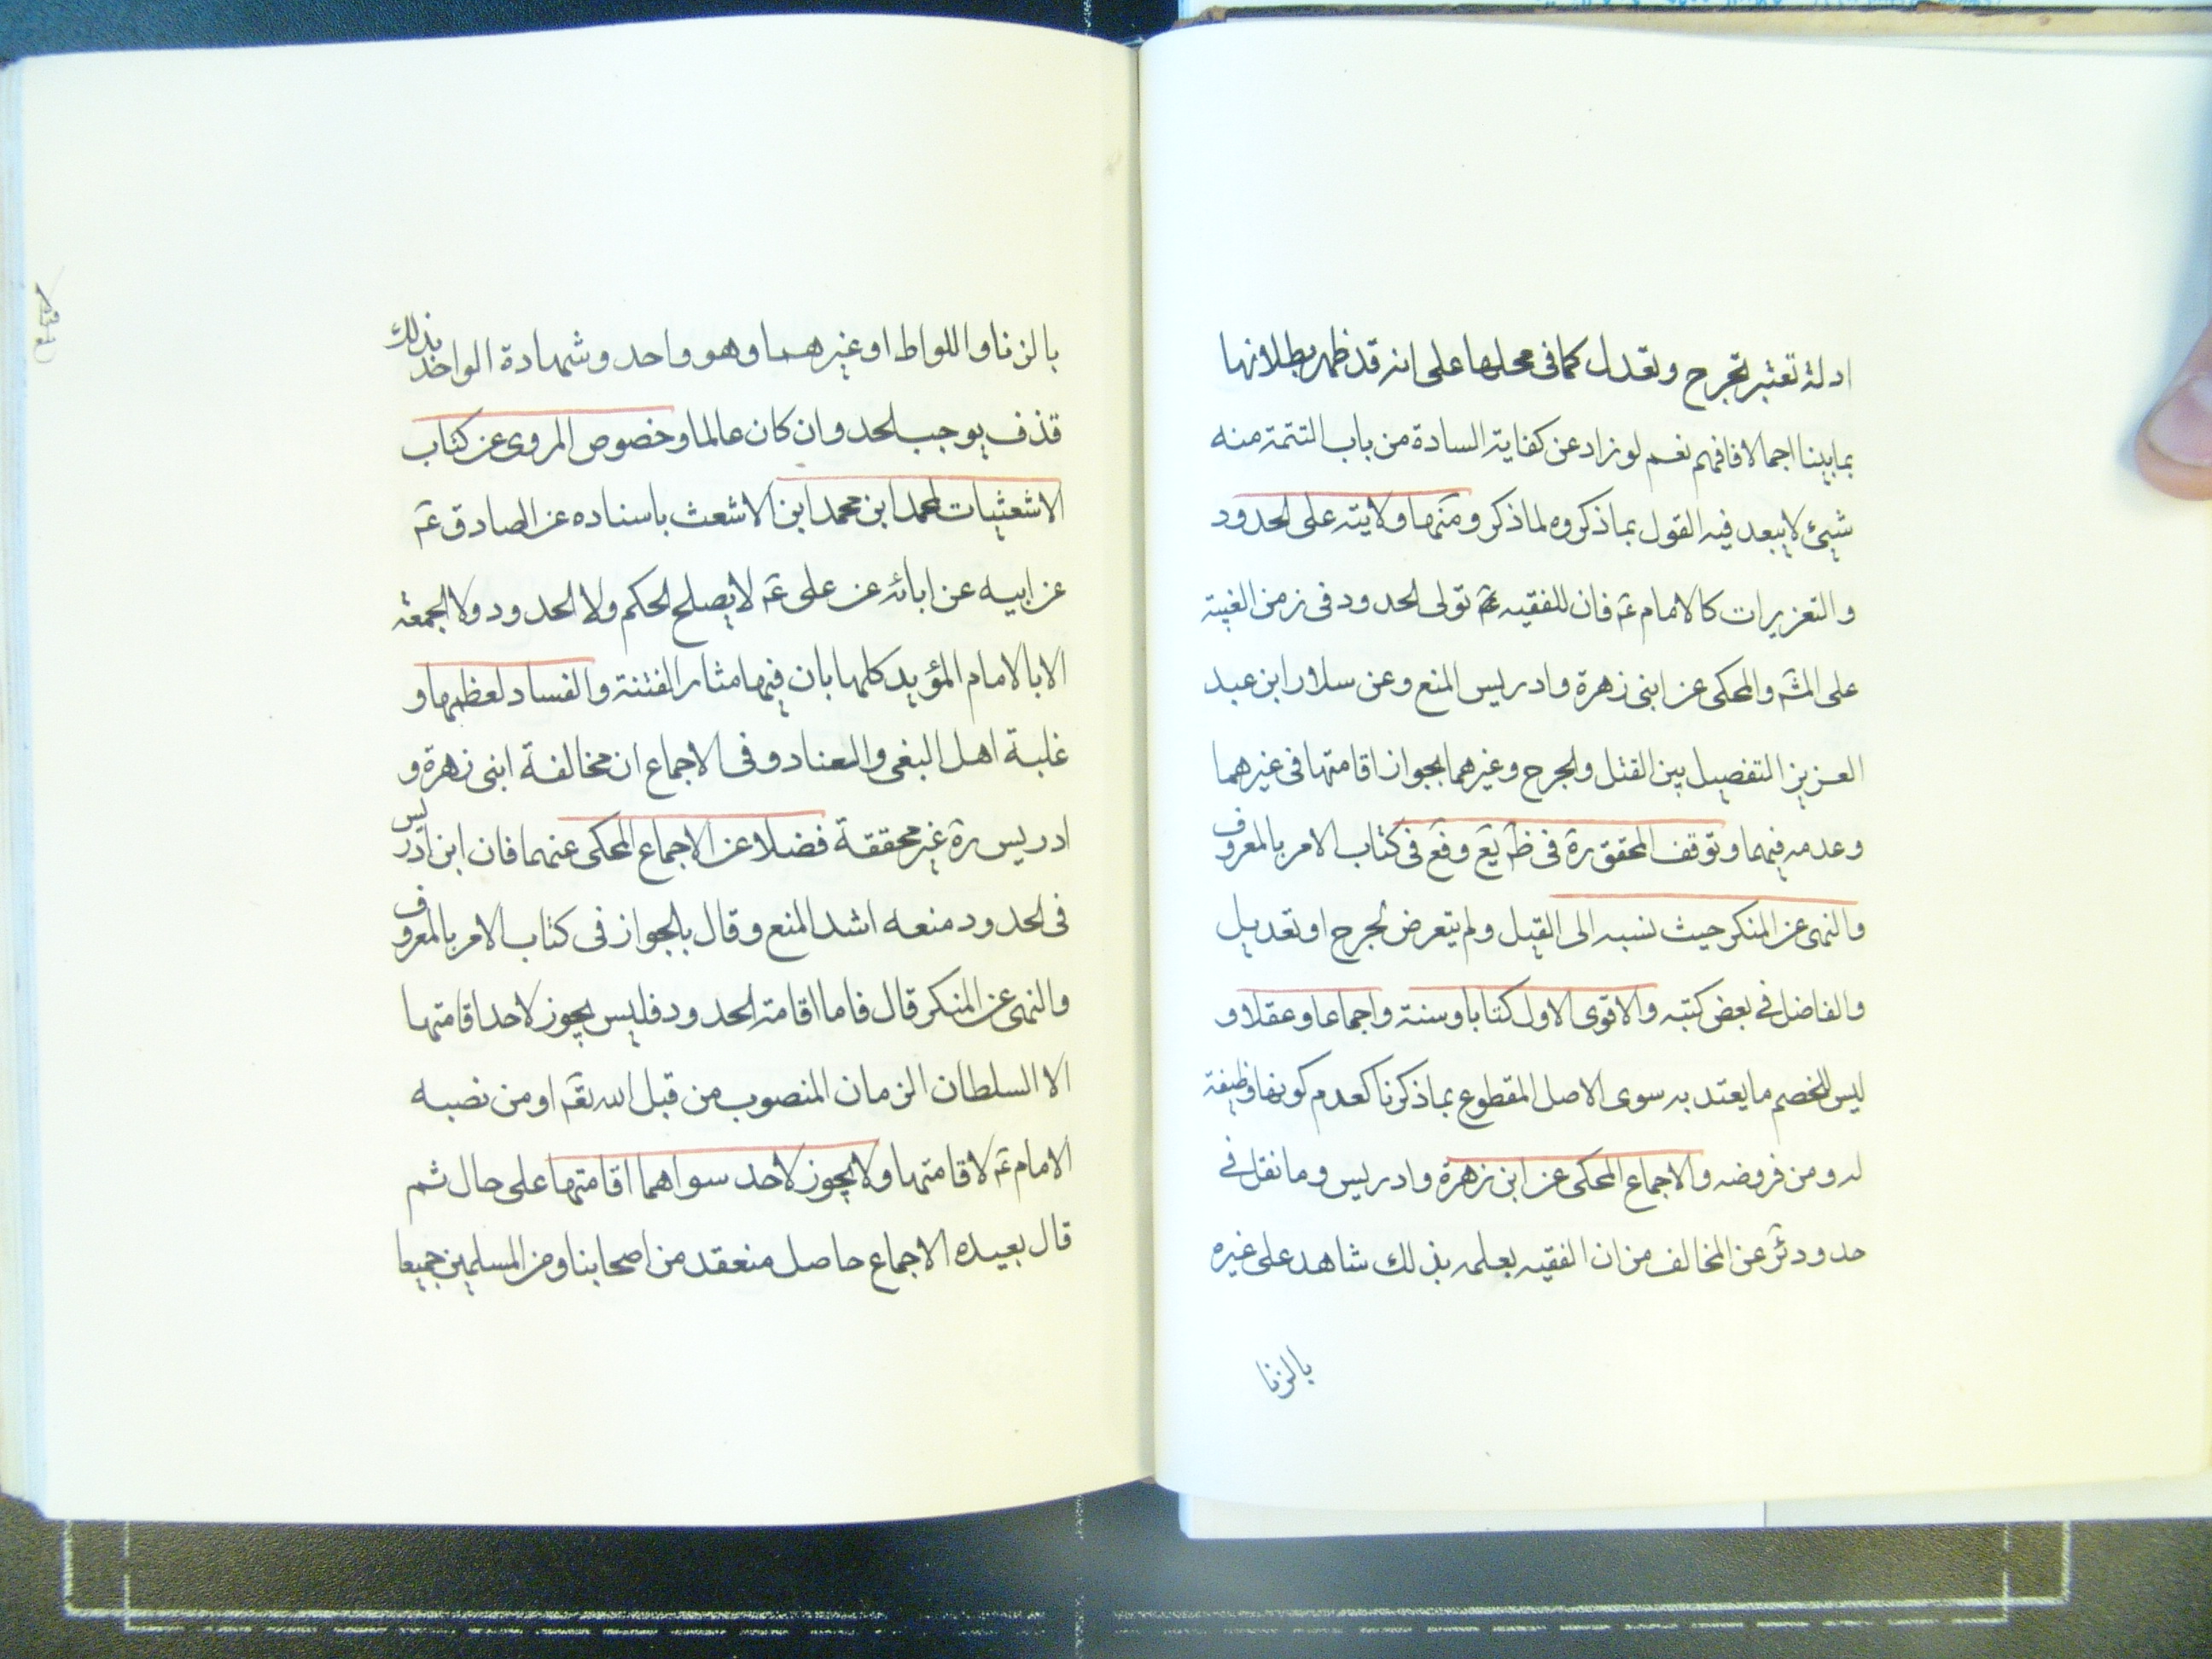 ادلة تعتبر بجرح وتعدل كما فى محلها على انه قد ظهر بطلانها
بما بينا اجمالا فافهم نعم لو زاد عن كفاية السادة من باب التتمة منه
شيئ لا يبعد فيه القول بما ذكروه لما ذكر ومنها ولايته على الحدود
والتعزيرات كالامام عۤ فان للفقيه تولى الحدود فى زمن الغيبة
على المشۤ والمحكى عن ابنى زهرة وادريس المنع وعن سلار ابن عبد
العزيز التفصيل بين القتل والجرح وغيرهما بجواز اقامتها فى غيرهما
وعدمه فيهما وتوقف المحقق رة فى ظۤ يع وفع فى كتاب الامر بالمعروف
والنهى عن المنكر حيث نسبه الى القيل ولم يتعرض لجرح او تعديل
والفاضل فى بعض كتبه والاقوى الاول كتابا وسنة واجماعا وعقلا و
ليس للخصم ما يعتد به سوى الاصل المقطوع بما ذكرنا كعدم كونها وظيفة
له ومن فروضه والاجماع المحكى عن ابن زهرة وادريس وما نقل فى
حدود ئر عن المخالف من ان الفقيه بعلمه بذلك شاهد على غيره
بالزنا
بالزنا واللواط او غيرهما وهو واحد وشهادة الواحد بذلك
قذف يوجب لحد وان كان عالما وخصوص المروى عن كتاب
الاشعثيات لمحمد ابن محمد ابن الاشعث باسناده عن الصادق عۤ
عن ابيه عن ابائه عن على عۤ لا يصلح الحكم ولا الحدود ولا الجمعة
الا بالامام المؤيد كلها بان فيها مثار الفتنة والفساد لعظمها و
غلبة اهل البغى والعناد وفى الاجماع ان مخالفة ابنى زهرة و
ادريس رة غير محققة فضلا عن الاجماع المحكى عنهما فان ابن ادريس
فى لحدود منعه اشد المنع وقال بالجواز فى كتاب الامر بالمعروف
والنهى عن المنكر قال فاما اقامة الحدود فليس يجوز لاحد اقامتها
الا السلطان الزمان المنصوب من قبل الله تعۤ او من نصبه
الامام عۤ لاقامتها ولا يجوز لاحد سواهما اقامتها على حال ثم
قال بعيده الاجماع حاصل منعقد من اصحابنا ومن المسلمين جميعا